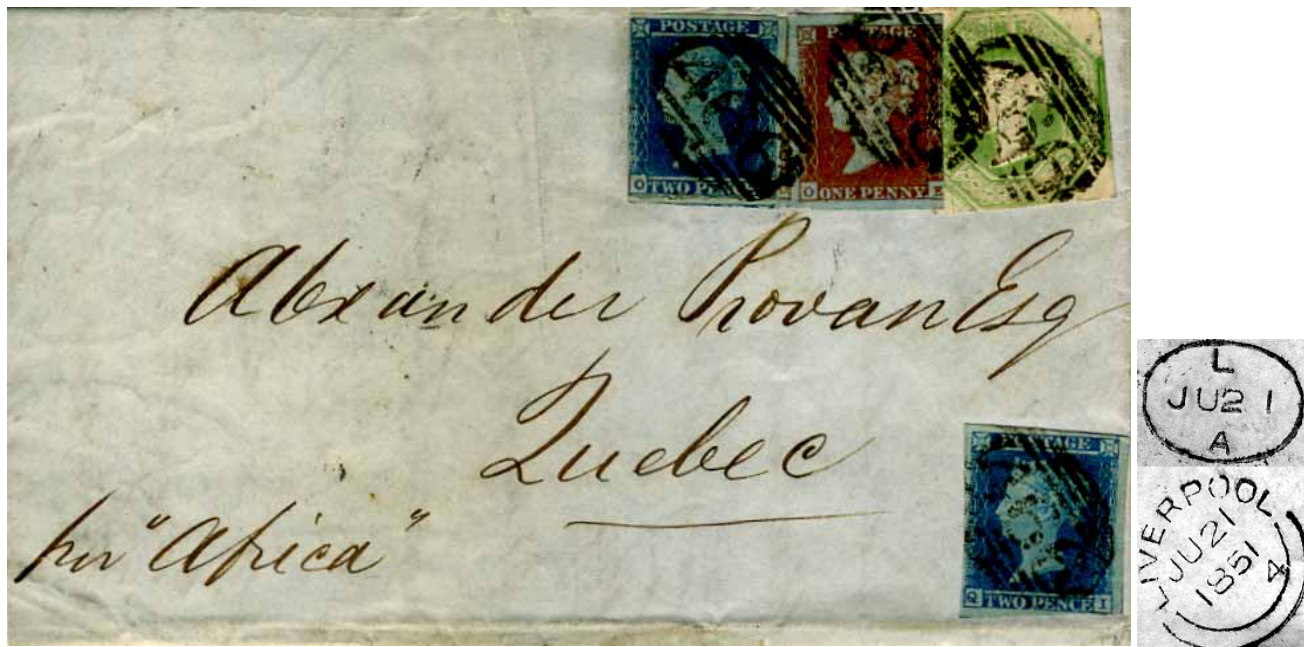 POSTAGE POSTAGE
O TWO PENCE O ONE PENNY E
Alexander Provan Esq
Quebec
per "Africa"
POSTAGE
Q TWO PENCE I
L
JU 21
A
LIVERPOOL
JU 21
1851
4